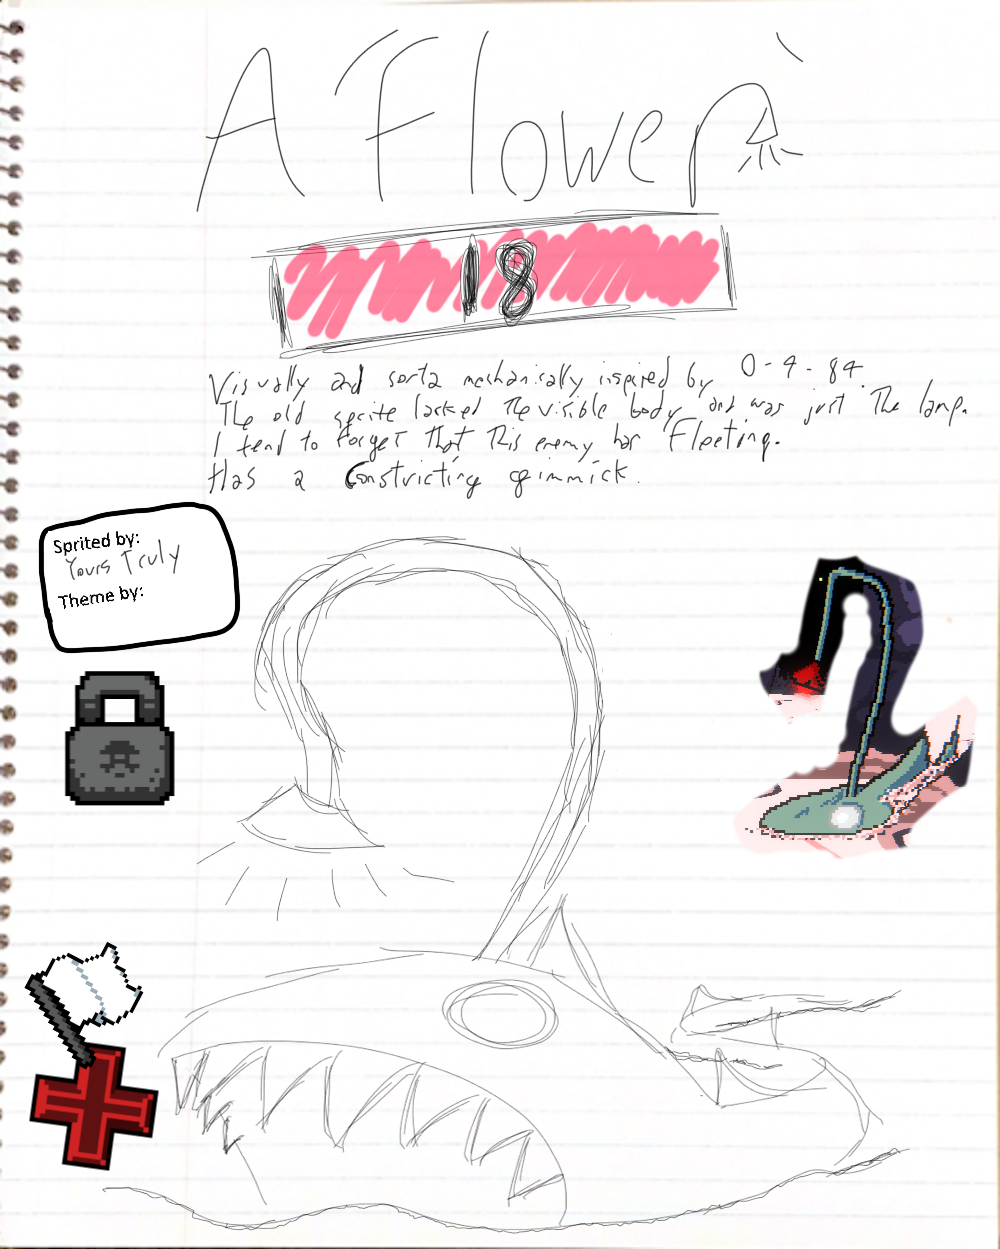 A Flower
18
Visually and sorta mechanically inspired by 0-4-84
The old sprite lacked the visible body and was just the lamp.
I tend to forget that this enemy has Fleeting.
Has a Constricting gimmick.
Sprited by:
Yours Truly
Theme by: